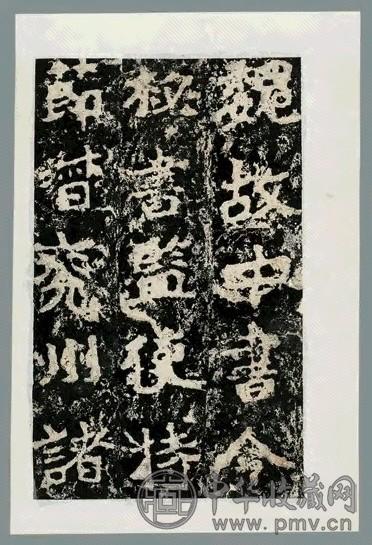 魏故中書令
秘書監使持
節督兖州諸
中华收藏网
www.pmv.cn